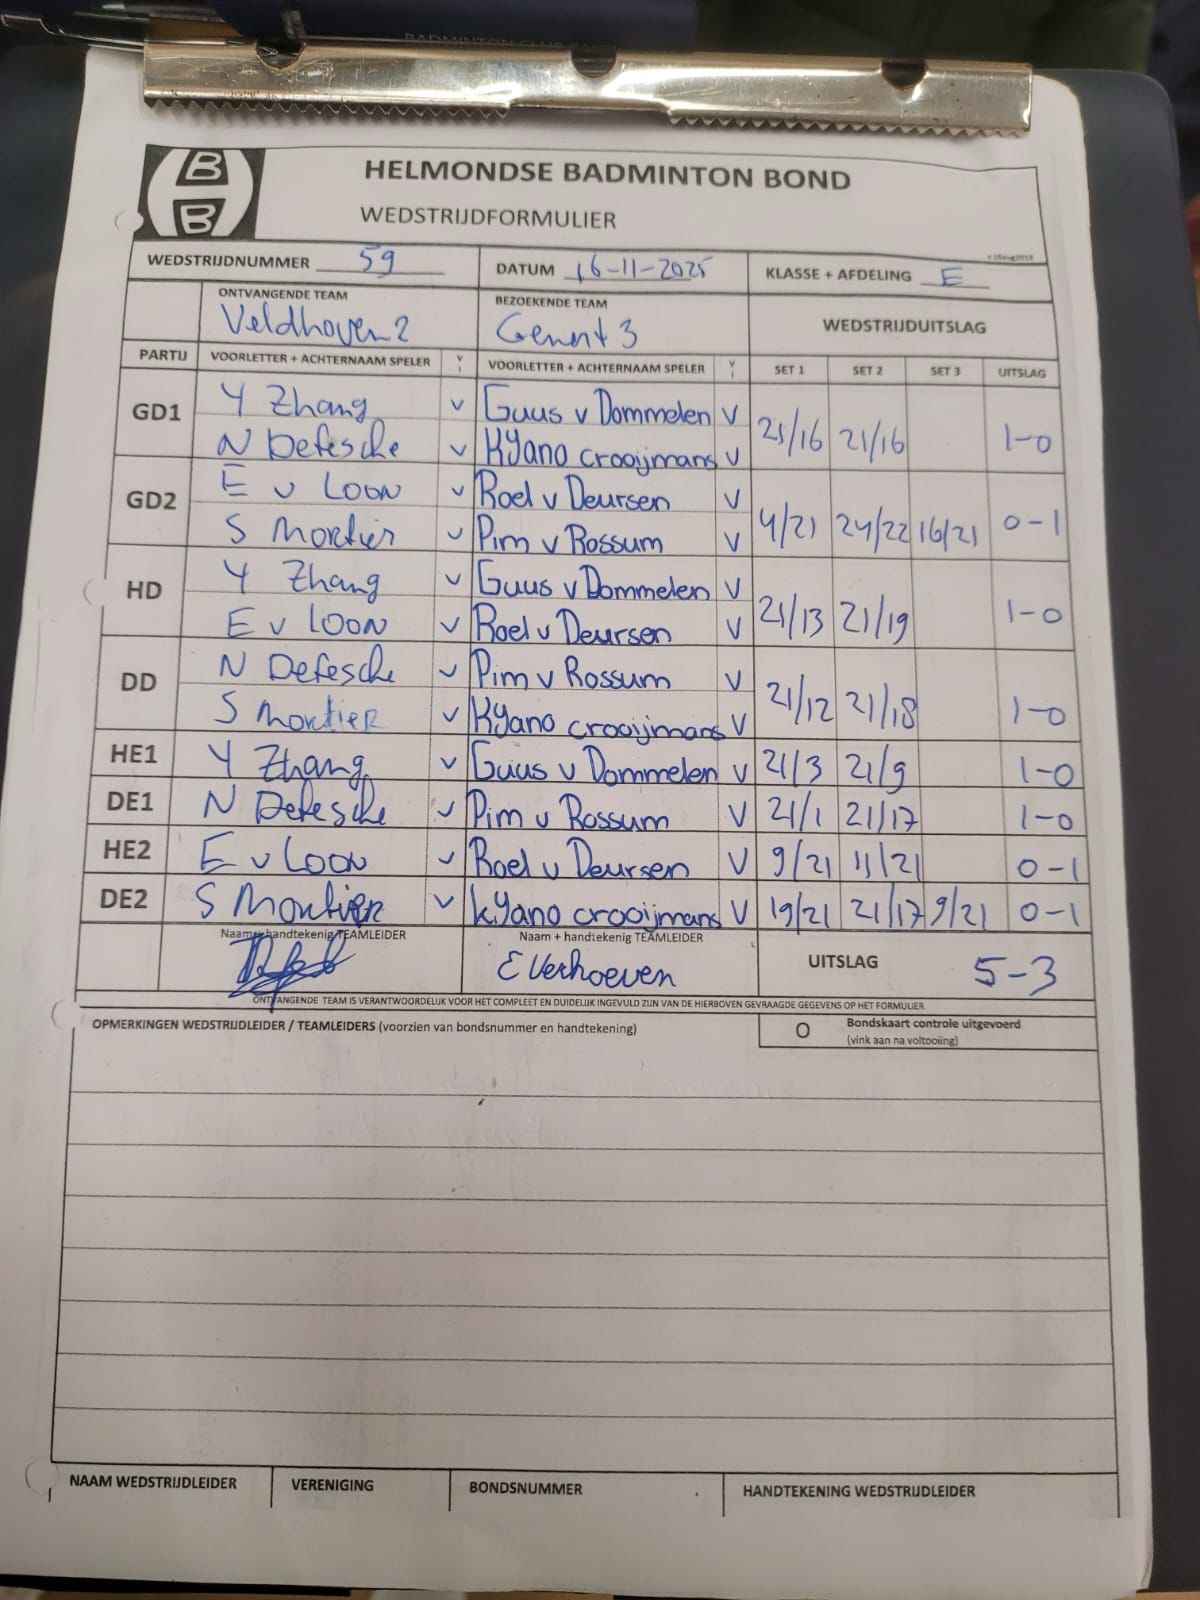 BADMINTON CLUB
B
B
HELMONDSE BADMINTON BOND
WEDSTRIJDFORMULIER
WEDSTRIJDNUMMER 59 DATUM 16-11-2025 KLASSE + AFDELING E
ONTVANGENDE TEAM BEZOEKENDE TEAM WEDSTRIJDUITSLAG
Veldhoven 2 Gemert 3
PARTIJ VOORLETTER + ACHTERNAAM SPELER V VOORLETTER + ACHTERNAAM SPELER V SET 1 SET 2 SET 3 UITSLAG
GD1 Y Zhang v Guus v Dommelen v 21/16 21/16 1-0
N Defesche v Kyano crooijmans v
GD2 E v Loon v Roel v Deursen v 4/21 24/22 16/21 0-1
S Mortier v Pim v Rossum v
HD Y Zhang v Guus v Dommelen v 21/13 21/19 1-0
E v Loon v Roel v Deursen v
DD N Defesche v Pim v Rossum v 21/12 21/18 1-0
S Mortier v Kyano crooijmans v
HE1 Y Zhang v Guus v Dommelen v 21/3 21/9 1-0
DE1 N Defesche v Pim v Rossum v 21/1 21/17 1-0
HE2 E v Loon v Roel v Deursen v 9/21 11/21 0-1
DE2 S Mortier v Kyano crooijmans v 19/21 21/17 9/21 0-1
Naam + handtekenig TEAMLEIDER Naam + handtekenig TEAMLEIDER UITSLAG 5-3
E Verhoeven
ONTVANGENDE TEAM IS VERANTWOORDELIJK VOOR HET COMPLEET EN DUIDELIJK INGEVULD ZIJN VAN DE HIERBOVEN GEVRAAGDE GEGEVENS OP HET FORMULIER.
OPMERKINGEN WEDSTRIJDLEIDER / TEAMLEIDERS (voorzien van bondsnummer en handtekening) O Bondskaart controle uitgevoerd
(vink aan na voltooiing)
NAAM WEDSTRIJDLEIDER VERENIGING BONDSNUMMER HANDTEKENING WEDSTRIJDLEIDER